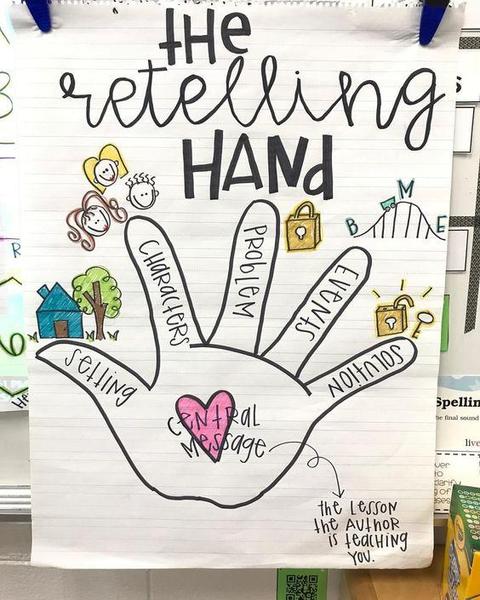 the
retelling
HANd
B M E
CHARACTERS
PROBLEM
EVENTS
SOLUTION
SETTING
CENTRAL
MESSAGE
the LESSON
the AUTHOR
is teaching
you.
Spellin
the final sound
live